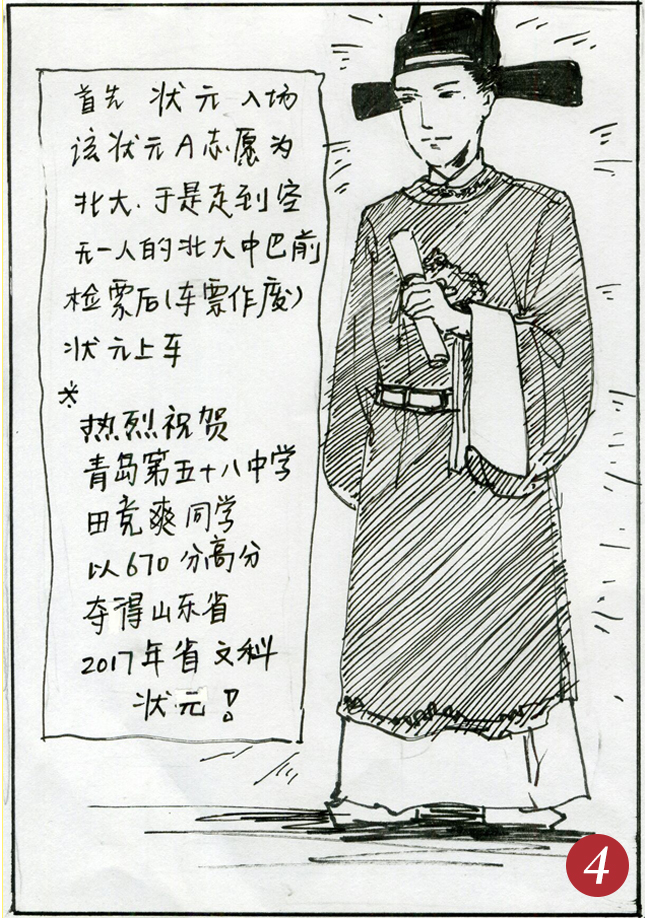 首先 状元入场
该状元A志愿为
北大.于是走到空
无一人的北大中巴前
检票后(车票作废)
状元上车
*
热烈祝贺
青岛第五十八中学
田竞爽同学
以670分高分
夺得山东省
2017年省文科
状元!
4